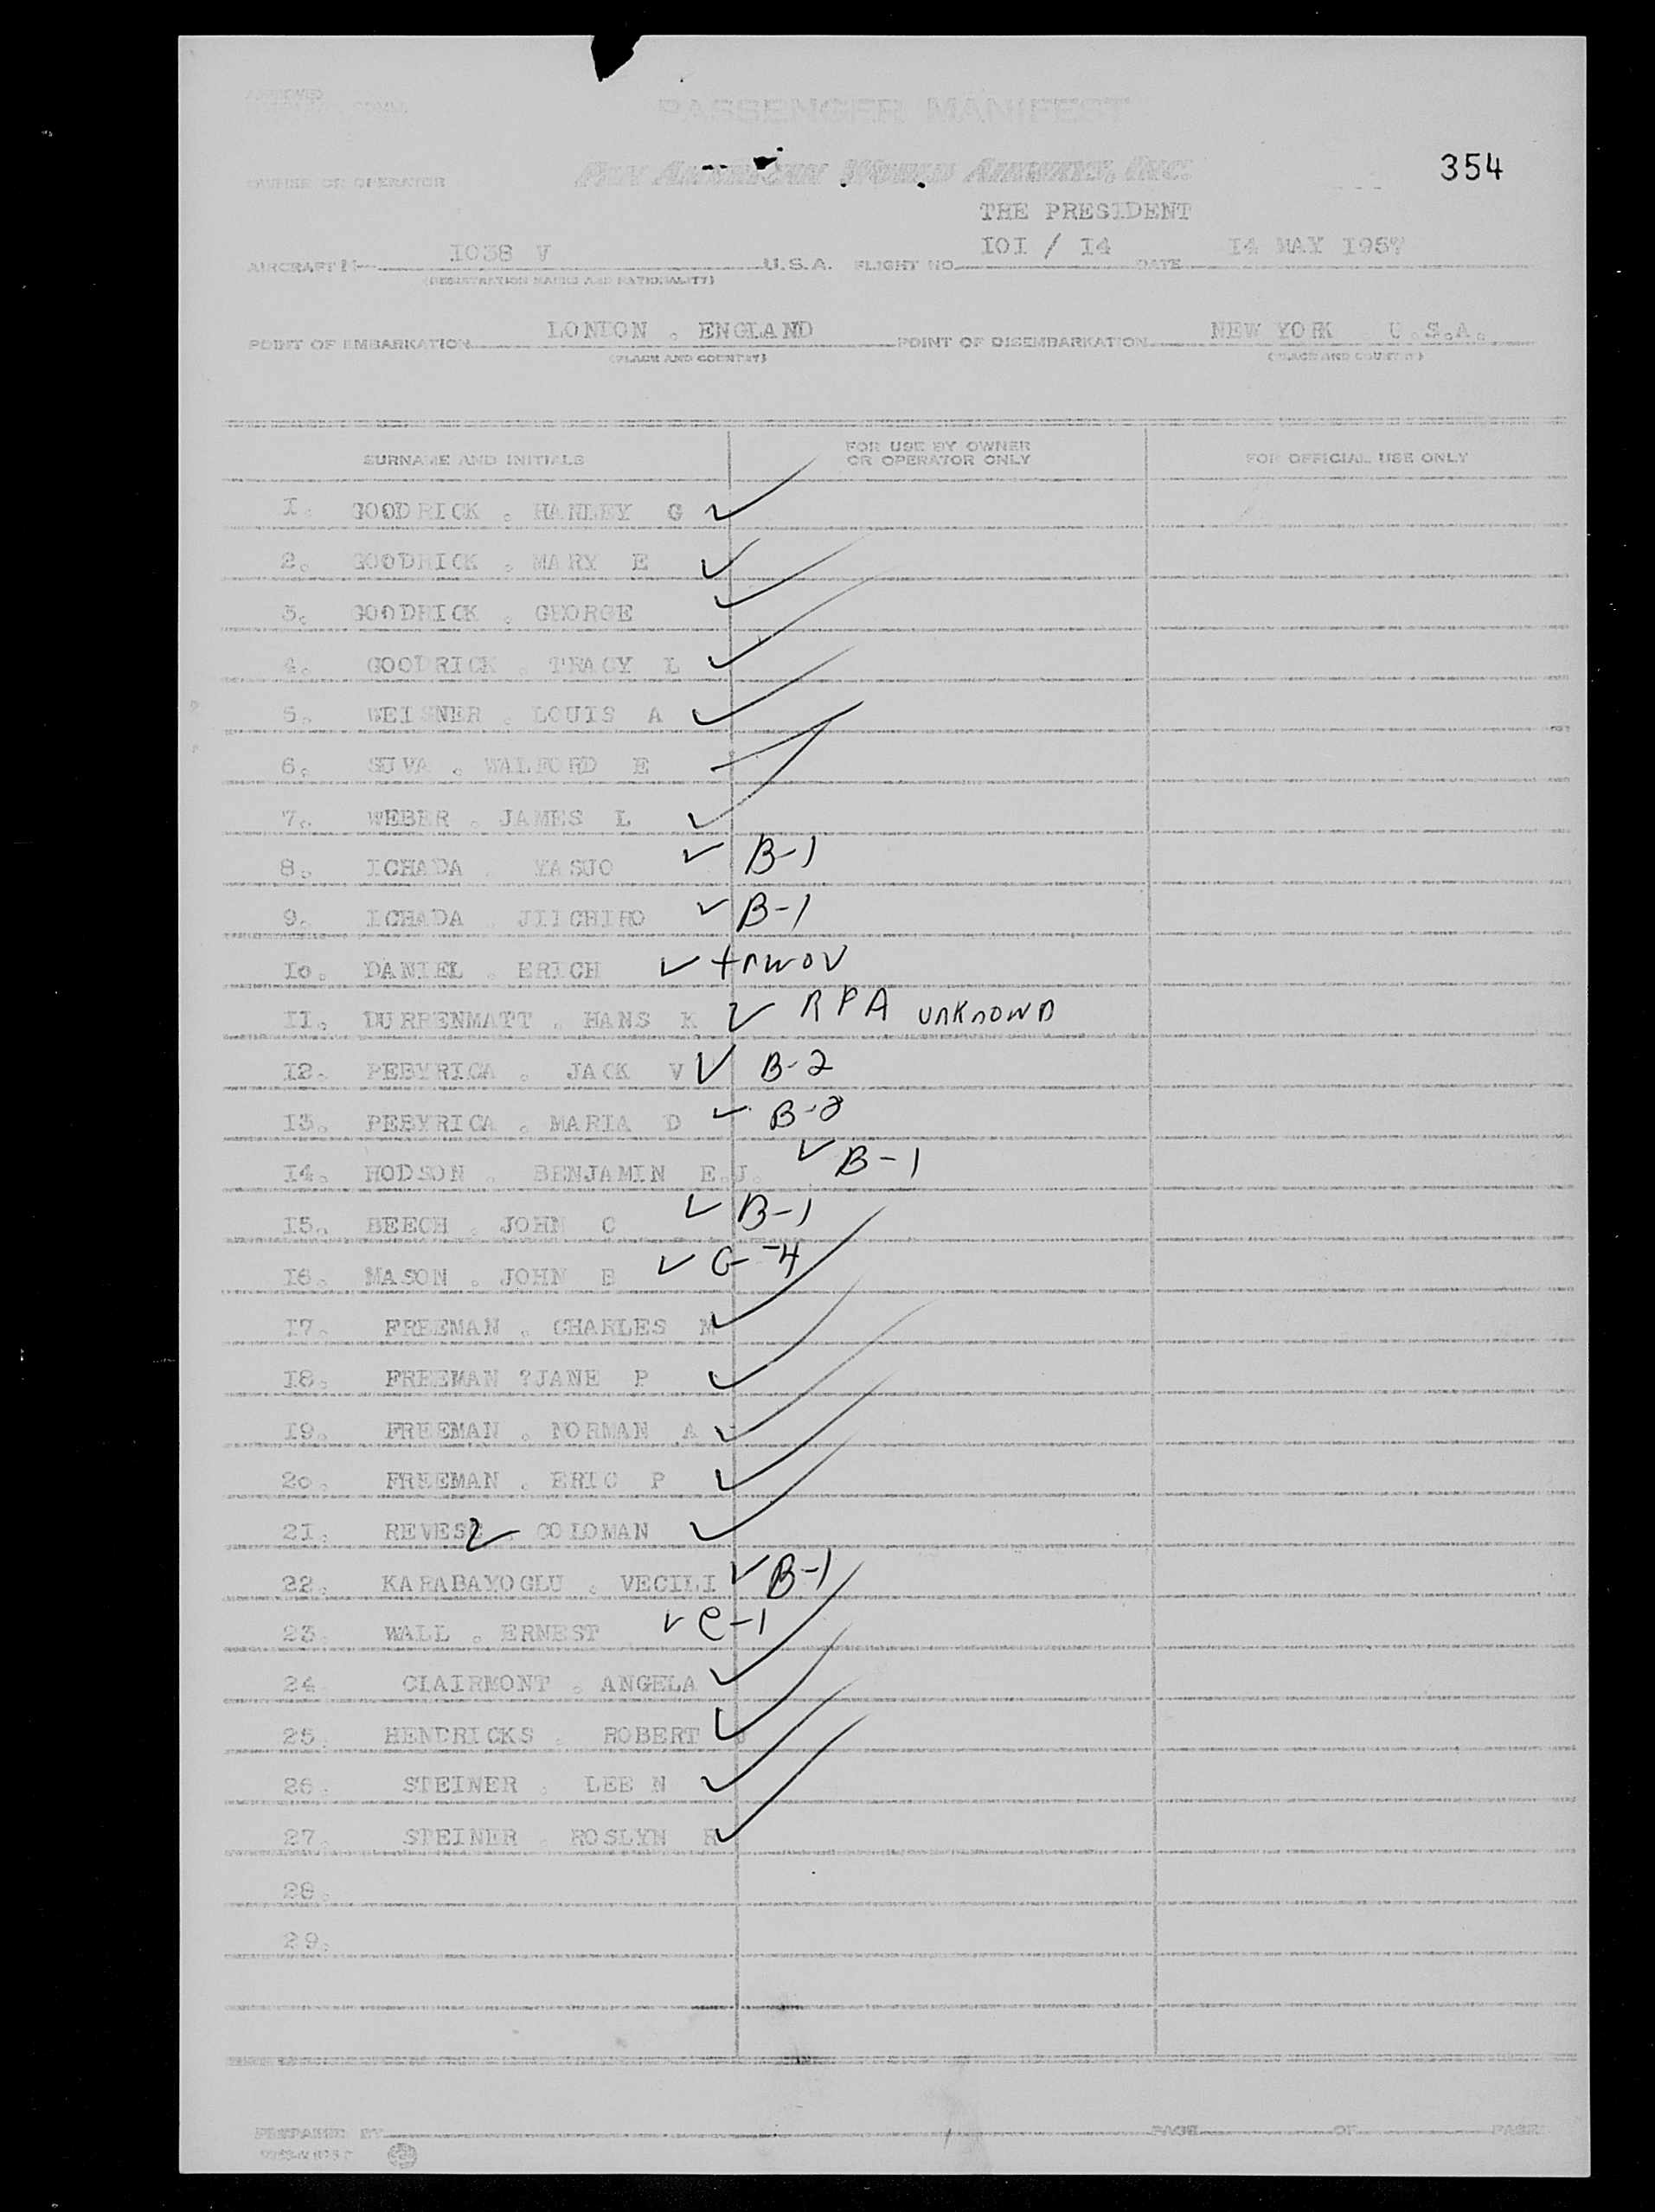 APPROVED
PASSENGER MANIFEST
OWNER OR OPERATOR PAN AMERICAN WORLD AIRWAYS, INC. 354
THE PRESIDENT
AIRCRAFT N 1038 V U.S.A. FLIGHT NO. IOI / I4 DATE I4 MAY I957
(REGISTRATION MARKS AND NATIONALITY)
POINT OF EMBARKATION LONDON . ENGLAND POINT OF DISEMBARKATION NEW YORK U.S.A.
(PLACE AND COUNTRY) (PLACE AND COUNTRY)
SURNAME AND INITIALS FOR USE BY OWNER OR OPERATOR ONLY FOR OFFICIAL USE ONLY
I. GOODRICK . HANLEY G ✓
2. GOODRICK . MARY E ✓
3. GOODRICK . GEORGE ✓
4. GOODRICK . TRACY L ✓
5. WEISNER . LOUIS A ✓
6. SUVA . WALFORD E
7. WEBER . JAMES L ✓
8. ICHADA . YASUO ✓ B-1
9. ICHADA . JIICHIRO ✓ B-1
Io. DANIEL . ERICH ✓ trwov
II. DURRENMATT . HANS K ✓ RPA unknown
I2. PEBYRICA . JACK V ✓ B-2
I3. PEBYRICA . MARIA D ✓ B-2
I4. HODSON . BENJAMIN E.J. ✓ B-1
I5. BEECH . JOHN C ✓ B-1
I6. MASON . JOHN B ✓ G-4
I7. FREEMAN . CHARLES M ✓
I8. FREEMAN ?JANE P ✓
I9. FREEMAN . NORMAN A ✓
2o. FREEMAN . ERIC P ✓
2I. REVESZ . COLOMAN ✓
22. KARABAYOGLU . VECILI ✓ B-1
23. WALL . ERNEST ✓ C-1
24. CLAIRMONT . ANGELA ✓
25. HENDRICKS . ROBERT ✓
26. STEINER . LEE N ✓
27. STEINER . ROSLYN R ✓
28.
29.
PREPARED BY PAGE OF PAGES